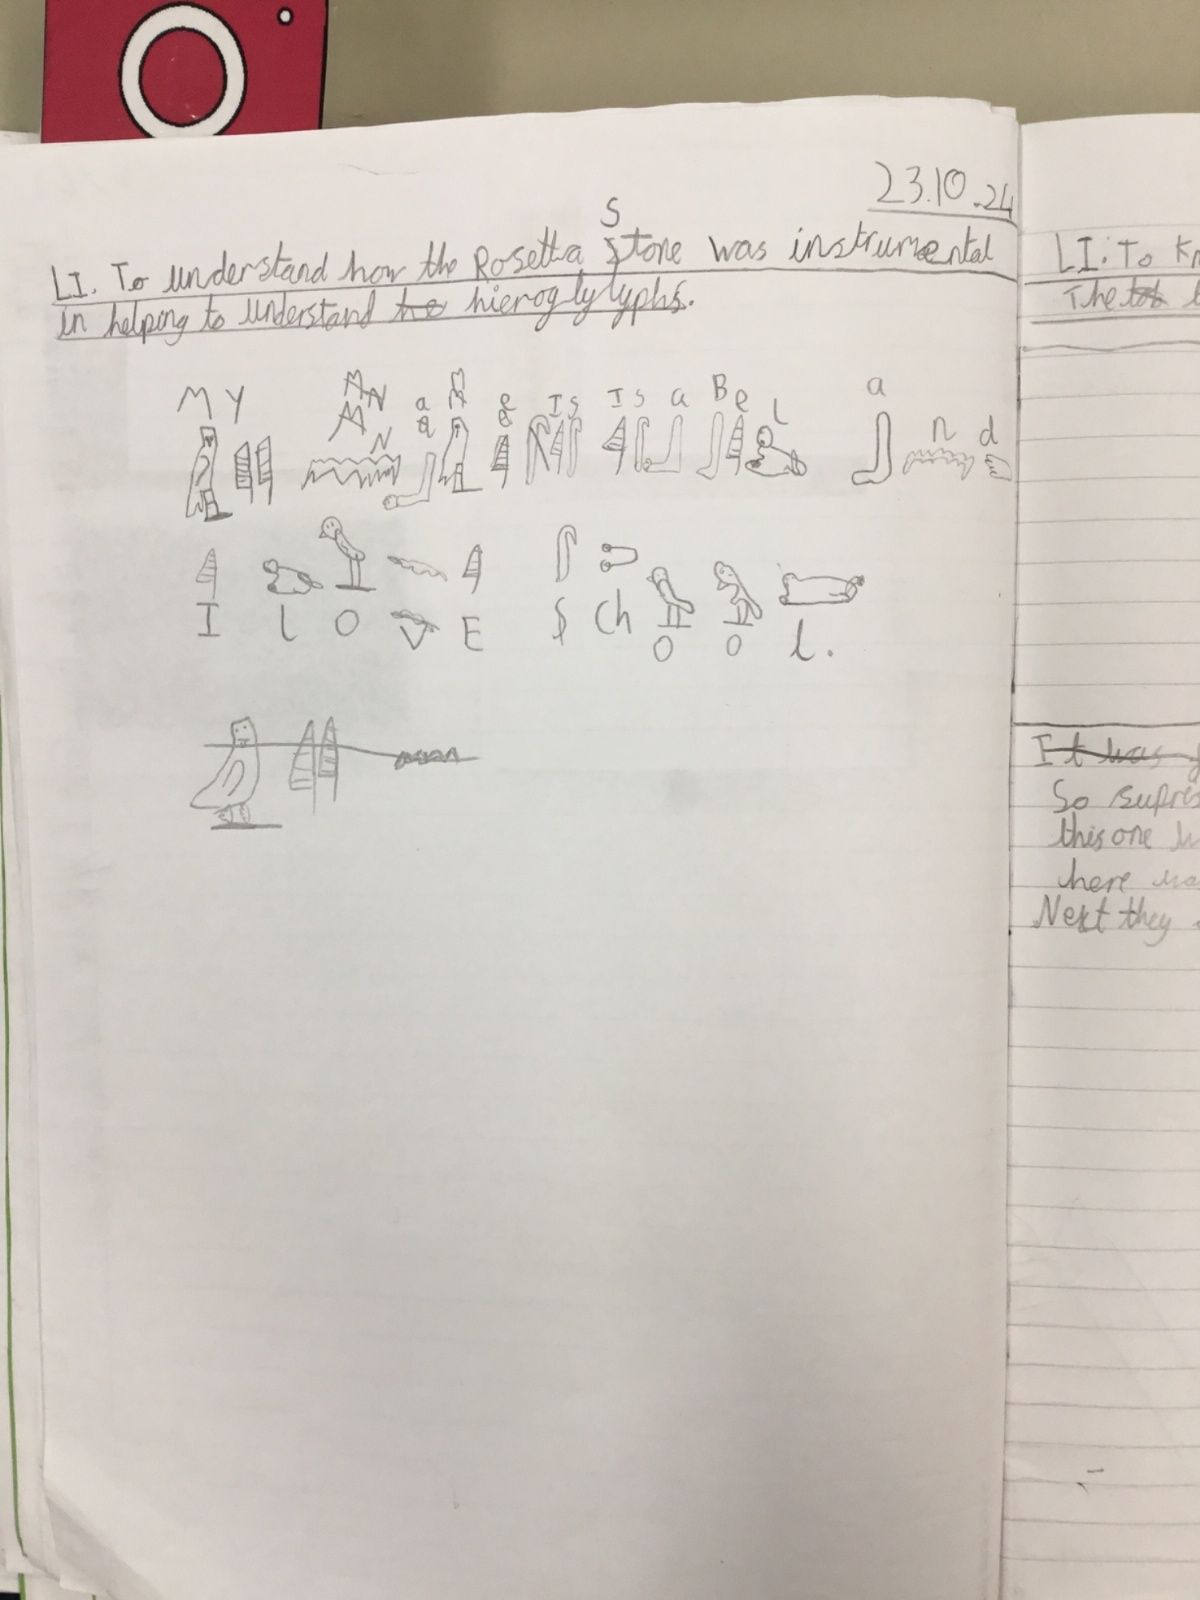 23.10.24
LI. To understand how the Rosetta Stone was instrumental
in helping to understand hieroglylyphs.
M Y N a M e Is Is a Be l a n d
I l O V E S Ch O O l.
LI: To
The
It was
So
this one
here
Next they